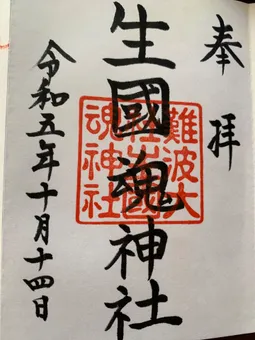 奉拝
生國魂神社
難波大
生國
魂神社
令和五年十月十四日